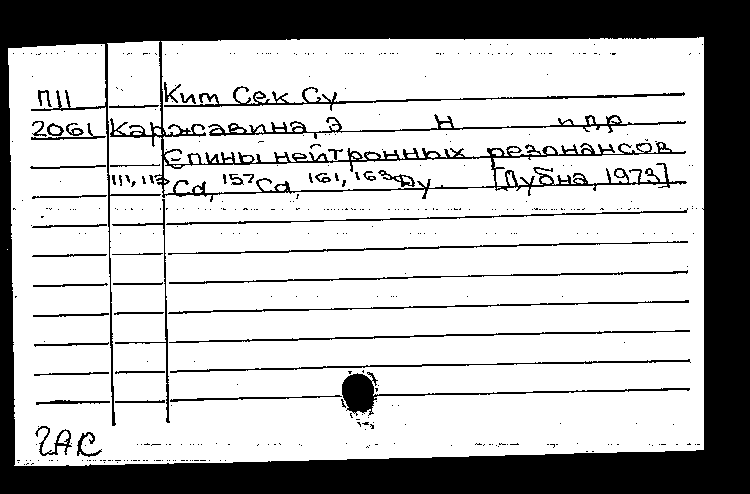 П11 Ким Сек Су
2061 Каржавина, Э Н и др.
Спины нейтронных резонансов
¹¹¹,¹¹³Cd, ¹⁵⁷Cd, ¹⁶¹,¹⁶³Dy. [Дубна, 1973]
ЧАС